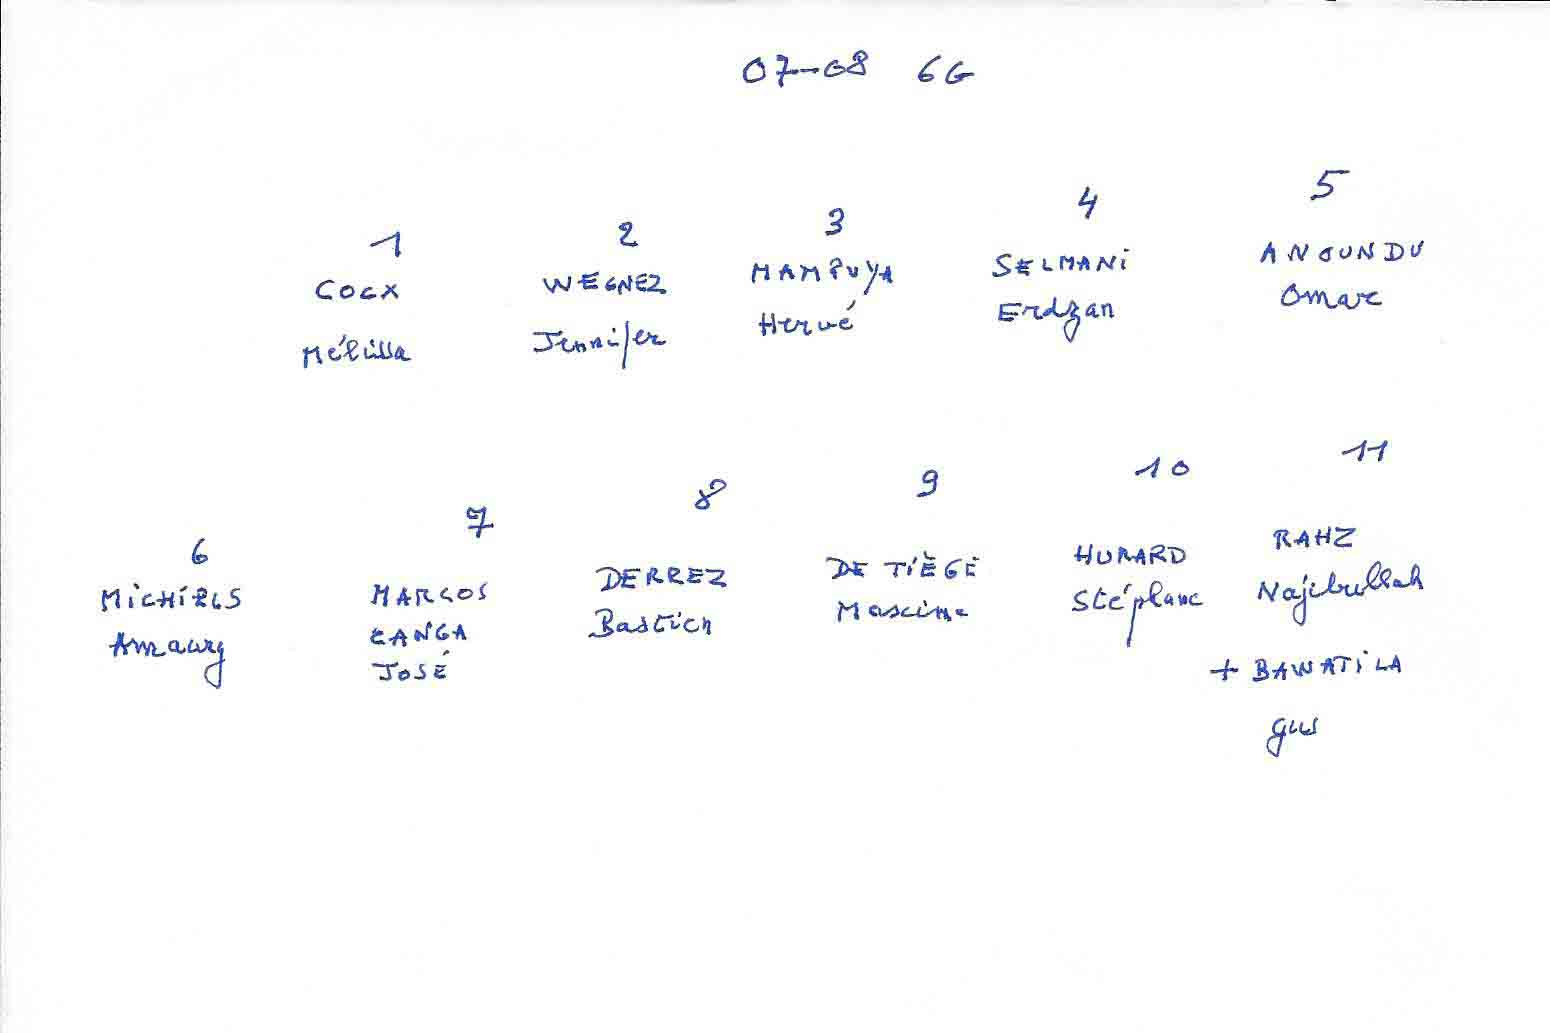 07-08 6G
1
COCX
Mélissa
2
WEGNEZ
Jennifer
3
MAMPUYA
Hervé
4
SELMANI
Erdzan
5
Omar
6
MICHIELS
Amaury
7
MARCOS
CANGA
JOSÉ
8
DERREZ
Bastien
9
DE TIÈGE
Maxime
10
Stéphane
11
RAHZ
Najibullah
+ BAWATILA
Gus